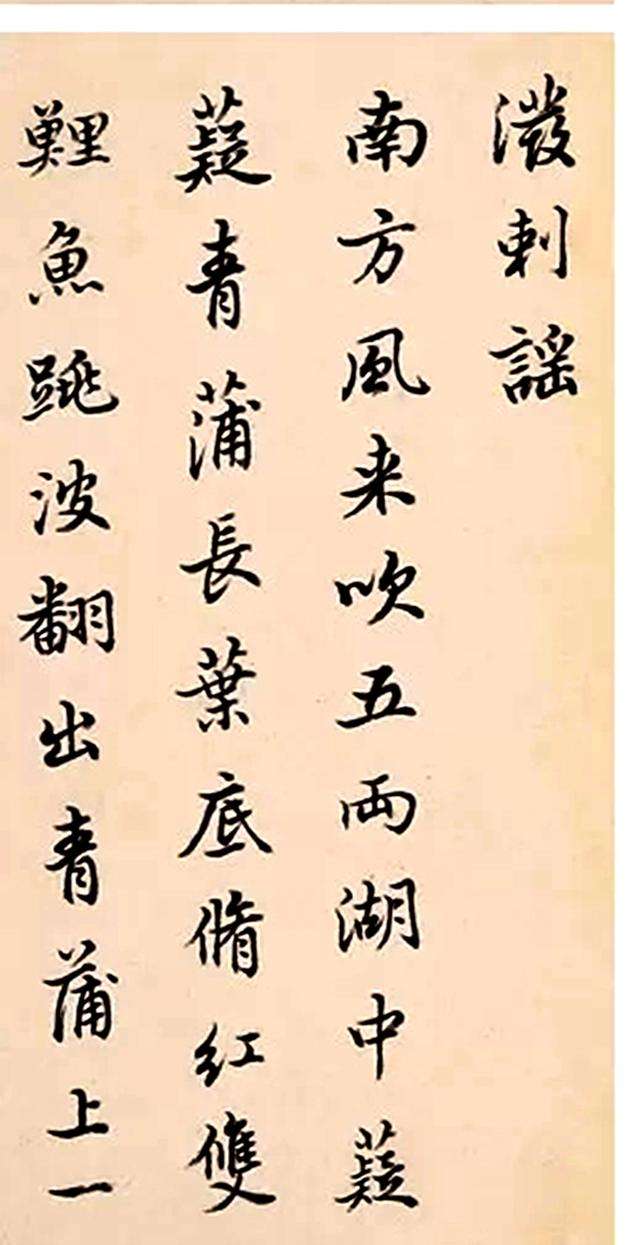 潑剌謠
南方風来吹五両湖中薿
薿青蒲長葉底脩紅雙
鯉魚跳波翻出青蒲上一